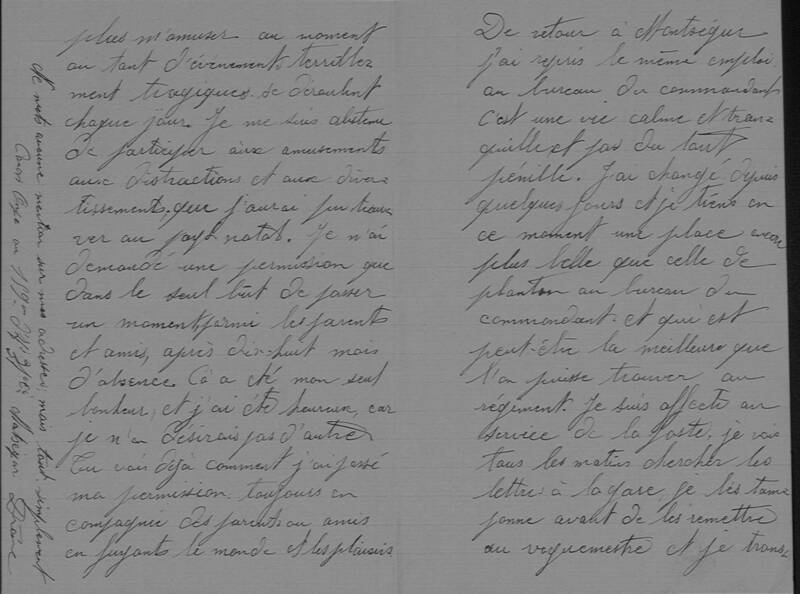 plus m'amuser au moment
ou tant d'événements terrible
ment tragiques se déroulent
chaque jour. Je me suis abstenu
de participer aux amusements
aux distractions et aux diver
tissements, que j'aurai pu trou
ver au pays natal. Je n'ai
demandé une permission que
dans le seul bût de passer
un moment parmi les parents
et amis, après dix-huit mois
d'absence. Ça a été mon seul
bonheur, et j'ai été heureux, car
je n'en désirais pas d'autre
Tu vois déjà comment j'ai passé
ma permission. toujours en
compagnie des parents ou amis
en fuyants le monde et les plaisirs
De retour à Montségur
j'ai repris le même emploi
au bureau du commandant
c'est une vie calme et tran-
quille et pas du tout
pénible. J'ai changé depuis
quelques jours et je tiens en
ce moment une place encore
plus belle que celle de
planton au bureau du
commandant et qui est
peut-être la meilleure que
l'on puisse trouver au
régiment. Je suis affecté au
service de la poste, je vais
tous les matins chercher les
lettres à la gare, je les tam
ponne avant de les remettre
au vaguemestre et je trans
Ne mets aucune mention sur mes adresses, mais tout simplement
Drôme